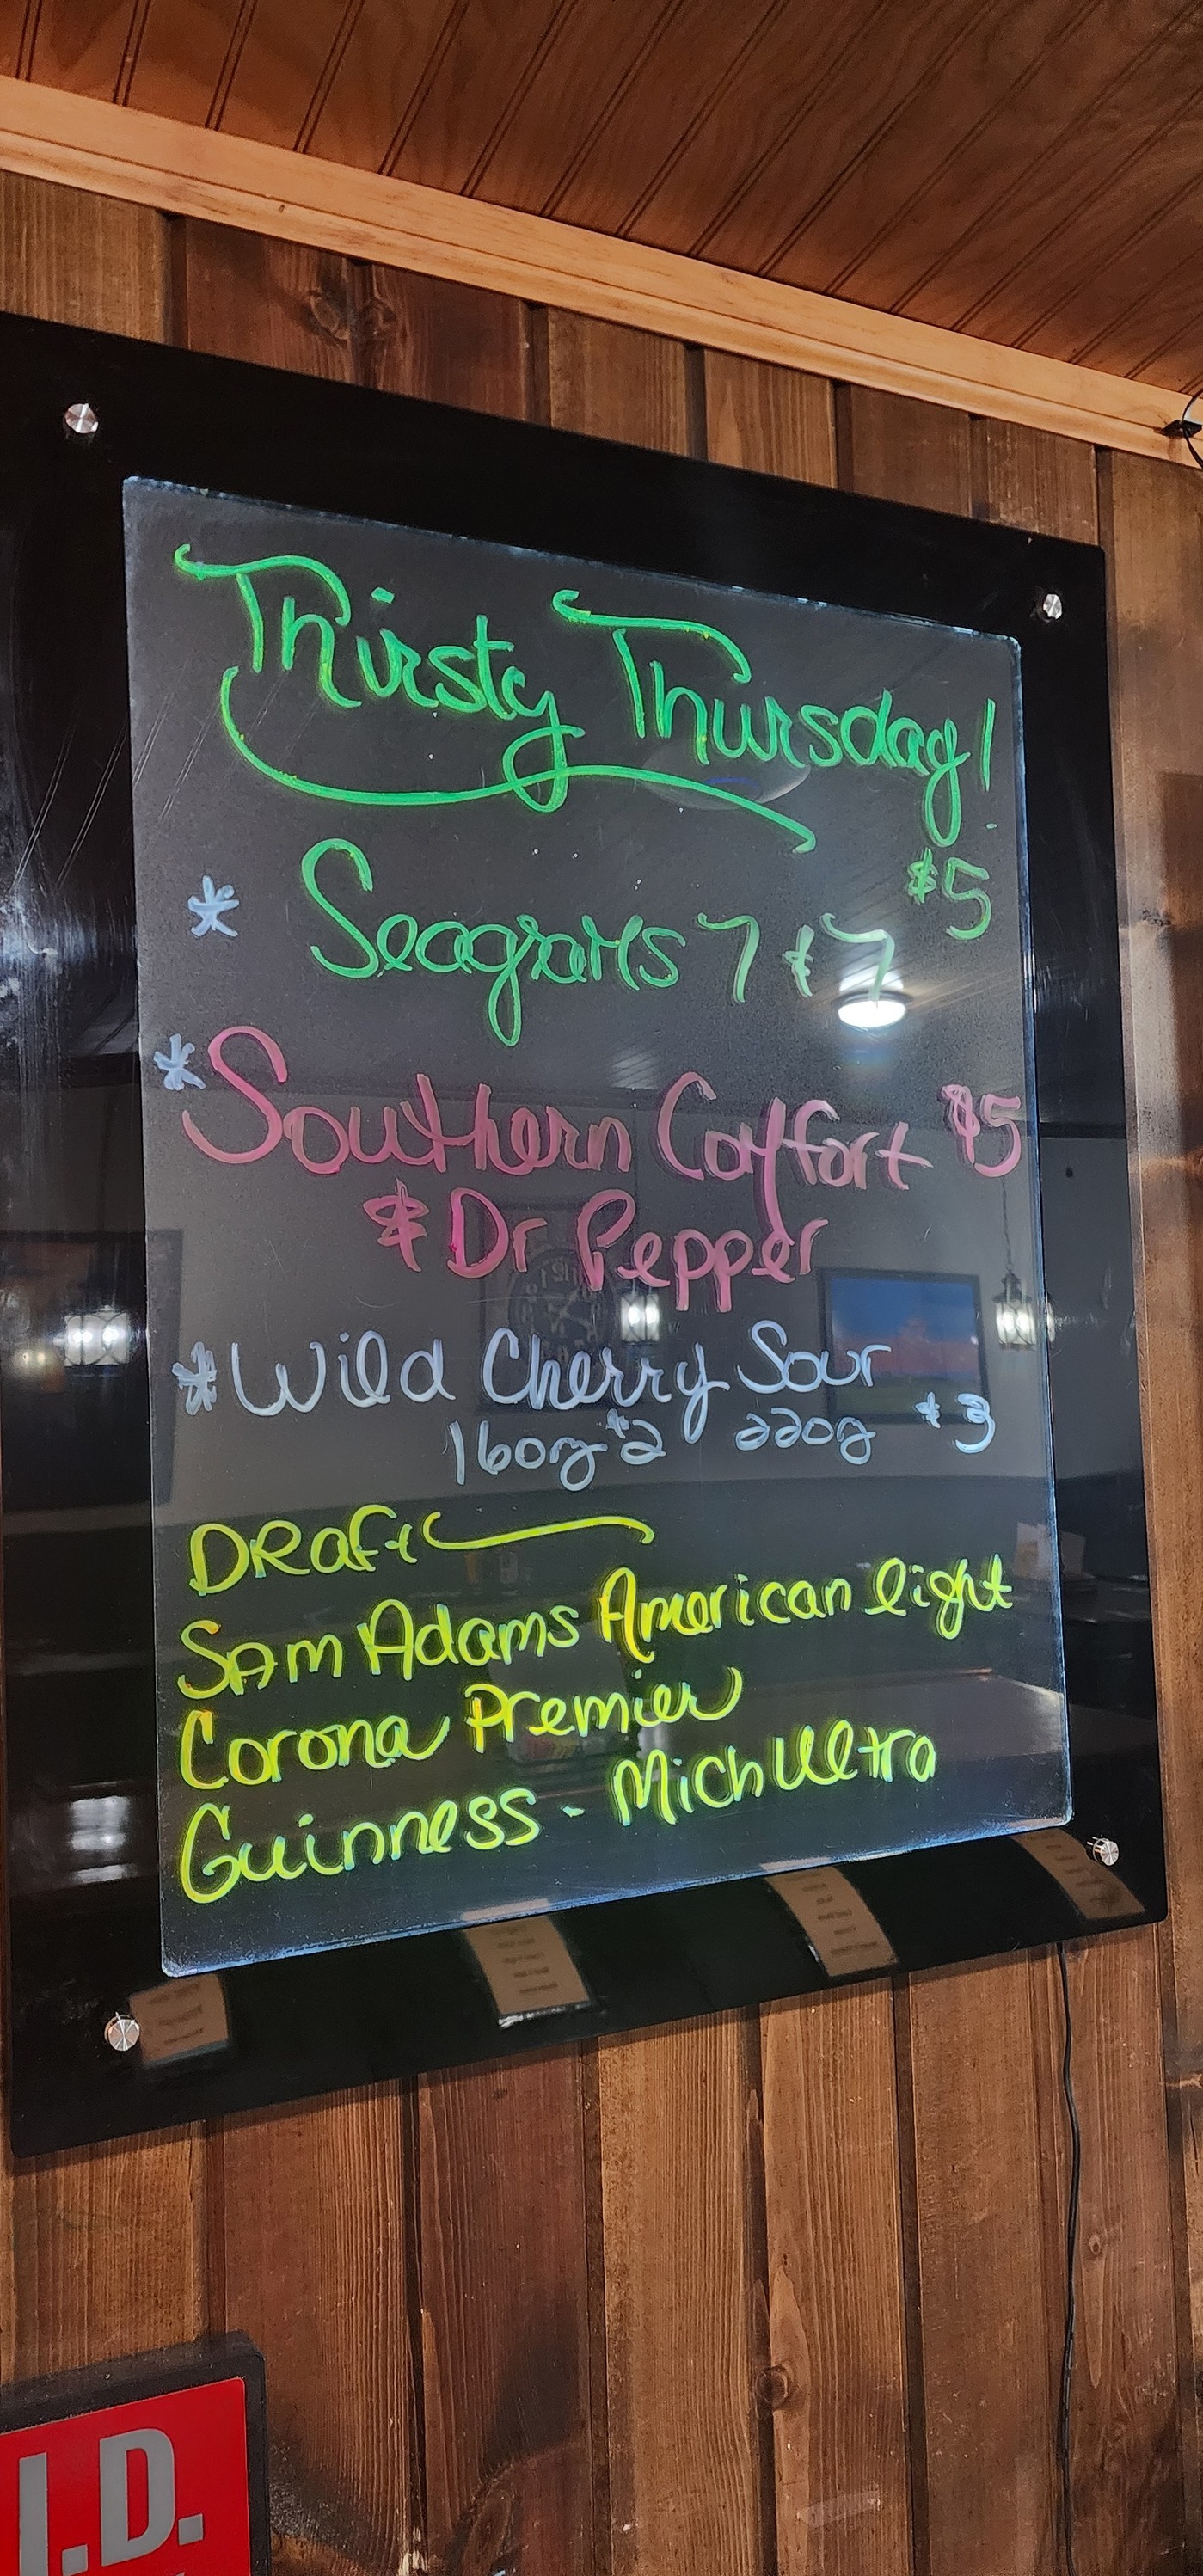 Thirsty Thursday!
* Seagrams 7 & 7 $5
* Southern Comfort $5
& Dr Pepper
* Wild Cherry Sour
16oz $2 22oz $3
DRaft
SAm Adams American light
Corona Premier
Guinness - Mich Ultra
I.D.